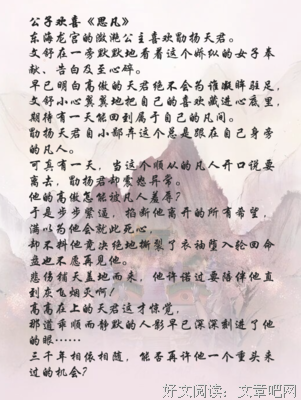 公子欢喜《思凡》
东海龙宫的潋滟公主喜欢勖扬天君。
文舒在一旁默默地看着这个娇纵的女子奉
献、告白及至心碎。
早已明白高傲的天君绝不会为谁凝眸驻足，
文舒小心翼翼地把自己的喜欢藏进心底里，
期待有一天能回到属于自己的凡间。
勖扬天君自小都弄这个总是跟在自己身旁
的凡人。
可真有一天，当这个顺从的凡人开口说要
离去，勖扬君却震恸异常。
他的高傲怎能被凡人羞辱？
于是步步紧逼，掐断他离开的所有希望，
满以为他会就此死心，
却不料他竟决绝地撕裂了衣袖堕入轮回命
盘也不愿再见他。
悲伤铺天盖地而来，他许诺过要陪伴他直
到灰飞烟灭啊！
高高在上的天君这才惊觉，
那道乖顺而静默的人影早已深深刻进了他
的眼……
三千年相依相随，能否再许他一个重头来
过的机会？
好文阅读：文章吧网